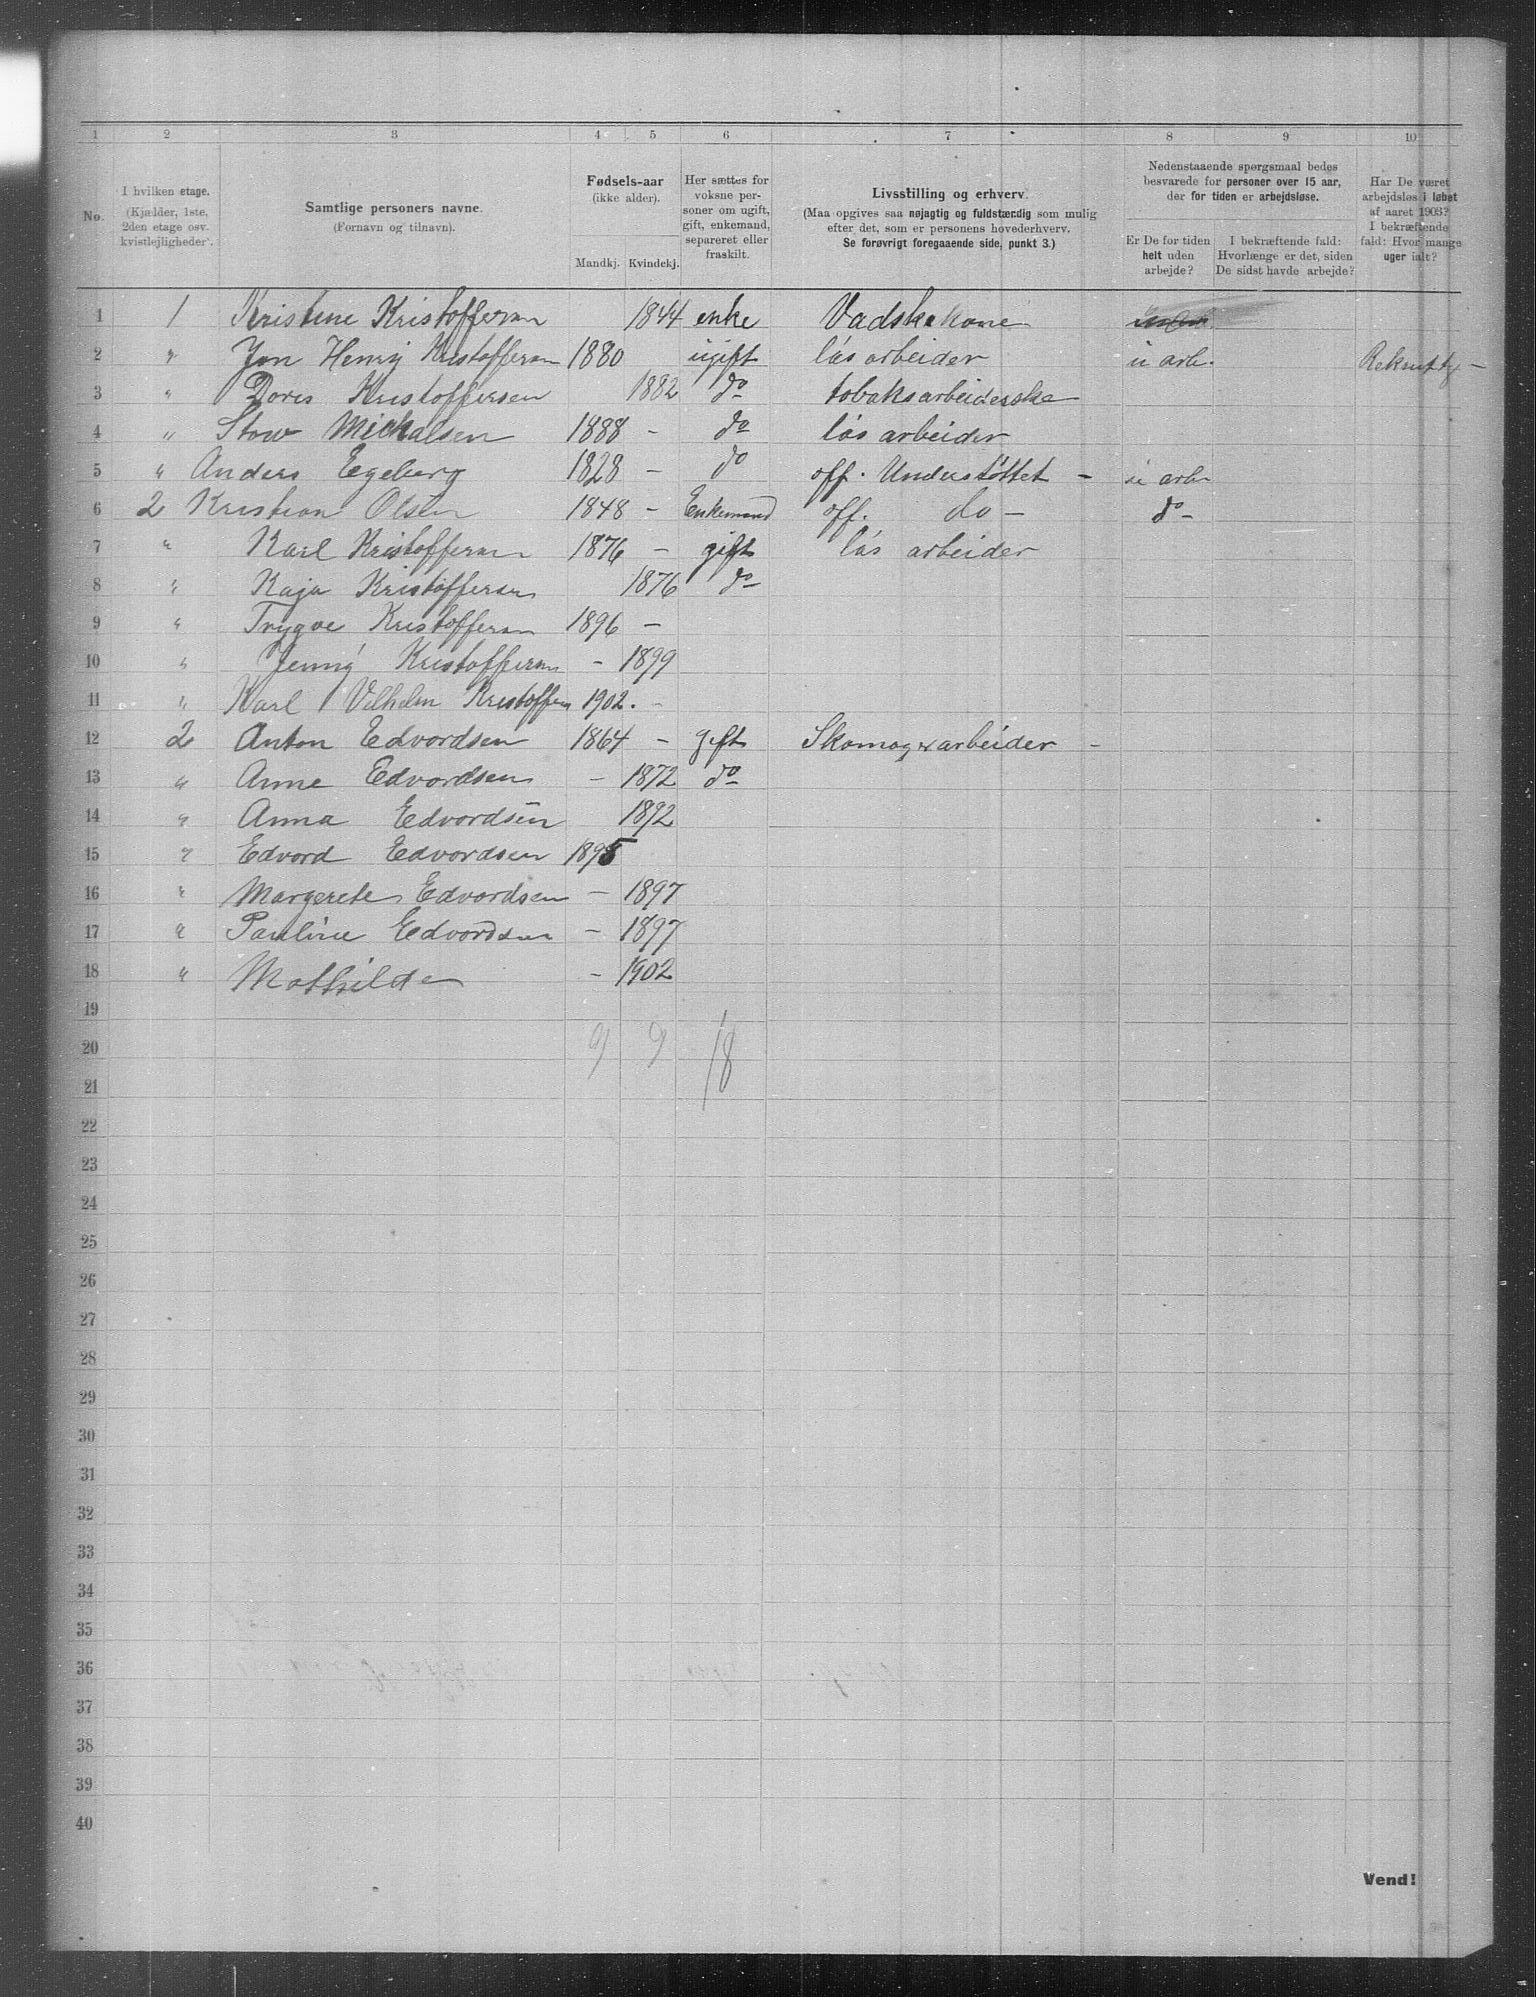 1 2 3 4 5 6 7 8 9 10
No. I hvilken etage. (Kjælder, 1ste, 2den etage osv. kvistlejligheder). Samtlige personers navne. (Fornavn og tilnavn). Fødsels-aar (ikke alder). Mandkj. Kvindekj. Her sættes for voksne personer om ugift, gift, enkemand, separeret eller fraskilt. Livsstilling og erhverv. (Maa opgives saa nøjagtig og fuldstændig som mulig efter det, som er personens hovederhverv. Se forøvrigt foregaaende side, punkt 3.) Nedenstaaende spørgsmaal bedes besvarede for personer over 15 aar, der for tiden er arbejdsløse. Er De for tiden helt uden arbejde? I bekræftende fald: Hvorlænge er det, siden De sidst havde arbejde? Har De været arbejdsløs i løbet af aaret 1903? I bekræftende fald: Hvor mange uger ialt?
1 1 Kristine Kristoffersen 1844 enke Vadskekone
2 " Jon Henrij Kristoffersen 1880 ugift løs arbeider u arb. 
3 " Dores Kristoffersen 1882 do tobaksarbeiderske
4 " Stow Mickalsen 1888 - do løs arbeider
5 " Anders Egeberg 1828 - do off. Understøttet - u arb
6 2 Kristian Olsen 1848 - Enkemand off. do - do -
7 " Karl Kristoffersen 1876 - gift løs arbeider
8 " Kaja Kristoffersen 1876 do
9 " Trygve Kristoffersen 1896 -
10 " Jenny Kristoffersen - 1899
11 " Karl Vilhelm Kristoffersen 1902. -
12 2 Anton Edvordsen 1864 - gift Skomagerarbeider -
13 " Anne Edvordsen - 1872 do
14 " Anna Edvordsen 1892
15 " Edvord Edvordsen 1895
16 " Margerete Edvordsen - 1897
17 " Pauline Edvordsen - 1897
18 " Mathilde - 1902
19
20 9 9 18
21
22
23
24
25
26
27
28
29
30
31
32
33
34
35
36
37
38
39
40
Vend!